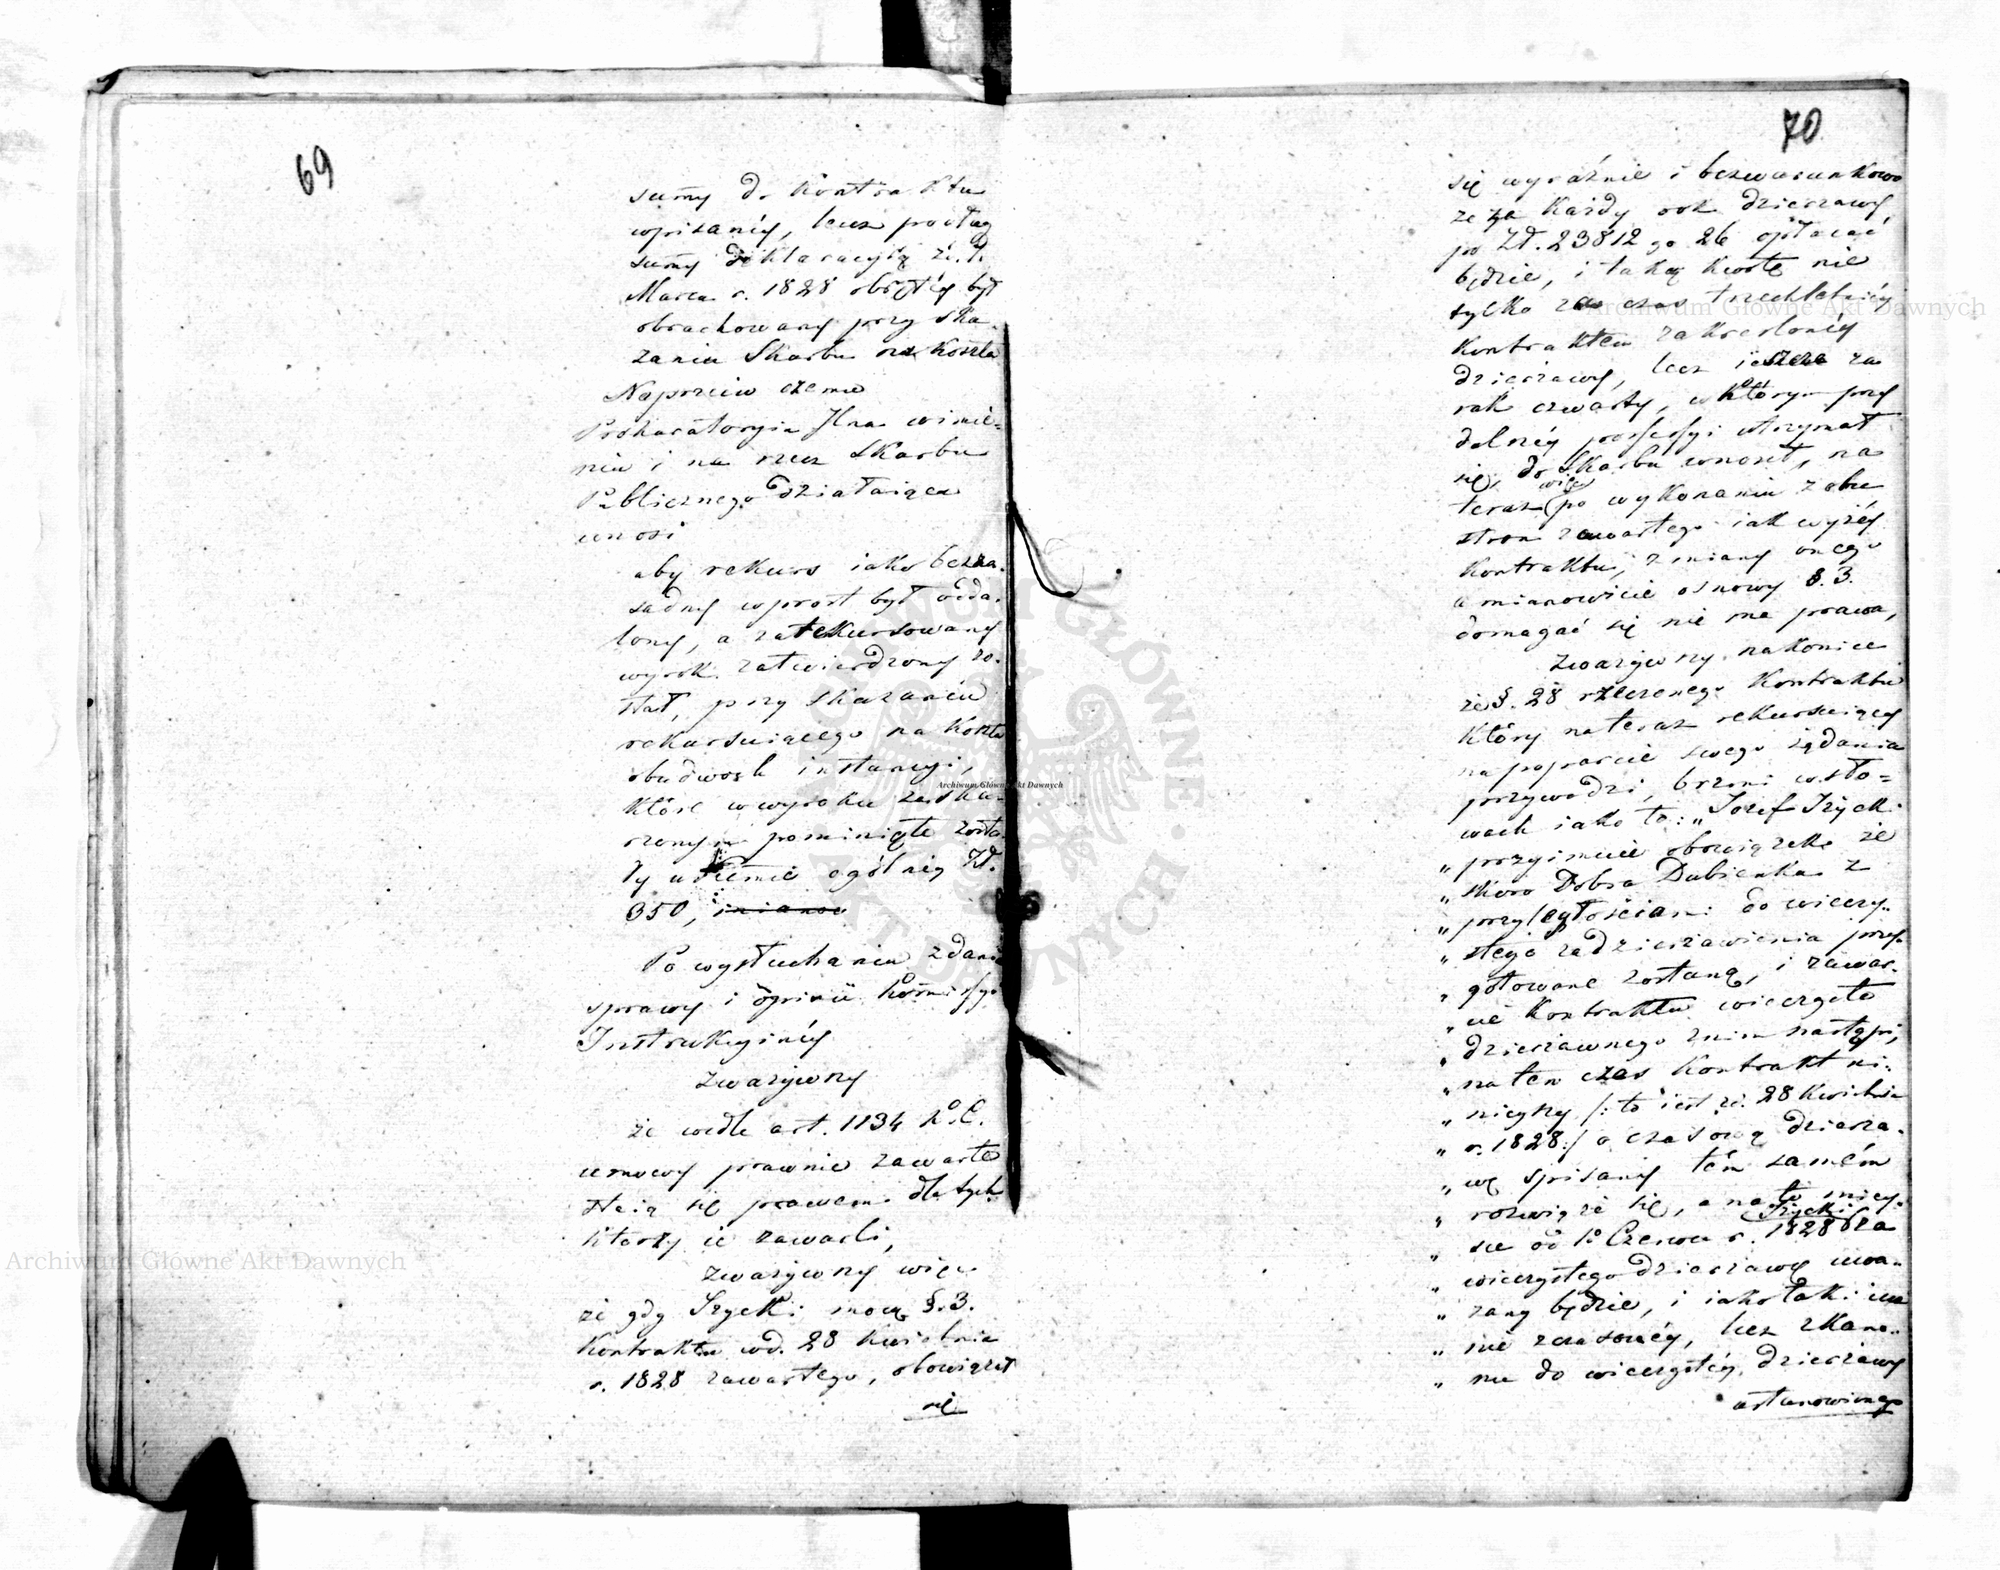 69
sumy do Kontraktu
wpisanéy, lecz podług
sumy deklaracyią z d. 1.
Marca r. 1828 obiętéy był
obrachowany przy ska-
zaniu Skarbu na koszta
Naprzeciw czemu
Prokuratorya Jlna w imie-
niu i na rzecz Skarbu
Publicznego działaiąca
wnosi
aby rekurs iako bezza-
sadny wprost był odda-
lony, a zarekursowany
wyrok zatwierdzony zo-
stał, przy skazaniu
rekursuiącego na koszta
obudwóch instancyi,
które w wyroku zaska-
rżonym pominięte zosta-
ły w summie ogólnéy Zł.
350,
Po wysłuchaniu zdania
sprawy i opinii Kommissyi
Instrukcyinéy
Zważywszy
że wedle art. 1134 K. C.
umowy prawnie zawarte
staią się prawem dla tych
którzy ie zawarli,
Zważywszy więc
że gdy Iżycki mocą §. 3.
Kontraktu w d. 28 Kwietnia
r. 1828 zawartego, obowiązał
się
70
się wyraźnie i bezwarunkowo
że za każdy rok dzierżawy
po Zł. 23812 gr 26 opłacać
będzie, i taką kwotę nie
tylko za czas trzechletniéy
kontraktem zakreślonéy
dzierżawy, lecz ieszcze za
rok czwarty, w którym przy
dalszéy possessyi utrzymał
się, do Skarbu wnosił, na
teraz więc po wykonaniu z obu
stron zawartego iak wyżéy
kontraktu, zmiany onego
a mianowicie osnowy §. 3.
domagać się nie ma prawa,
Zważywszy nakoniec
że §. 28 rzeczonego Kontraktu
który na teraz rekursuiący
na poparcie swego żądania
przywodzi, brzmi w sło-
wach iako to: „Jozef Iżycki
„ przyimuie obowiązek że
„ skoro Dobra Dubienka z
„ przyległościami do wieczy-
„ stego zadzierżawienia przy-
„ gotowane zostaną, i zawar-
„ cie Kontraktu wieczysto
„ dzierżawnego z nim nastąpi,
„ na ten czas Kontrakt ni-
„ nieyszy /: to iest z d. 28 Kwietnia
„ r. 1828 :/ o czasową dzierża-
„ wę spisany tém samém
„ rozwiąże się, a na to miey-
„ sce od 1o Czerwca r. 1828 Iżycki za
„ wieczystego dzierżawcę uwa-
„ żany będzie, i iako taki iuż
„ nie z czasowéy, lecz z Kano-
„ nu do wieczystéy dzierżawy
ustanowionego
Archiwum Główne Akt Dawnych
Archiwum Główne Akt Dawnych
Archiwum Główne Akt Dawnych